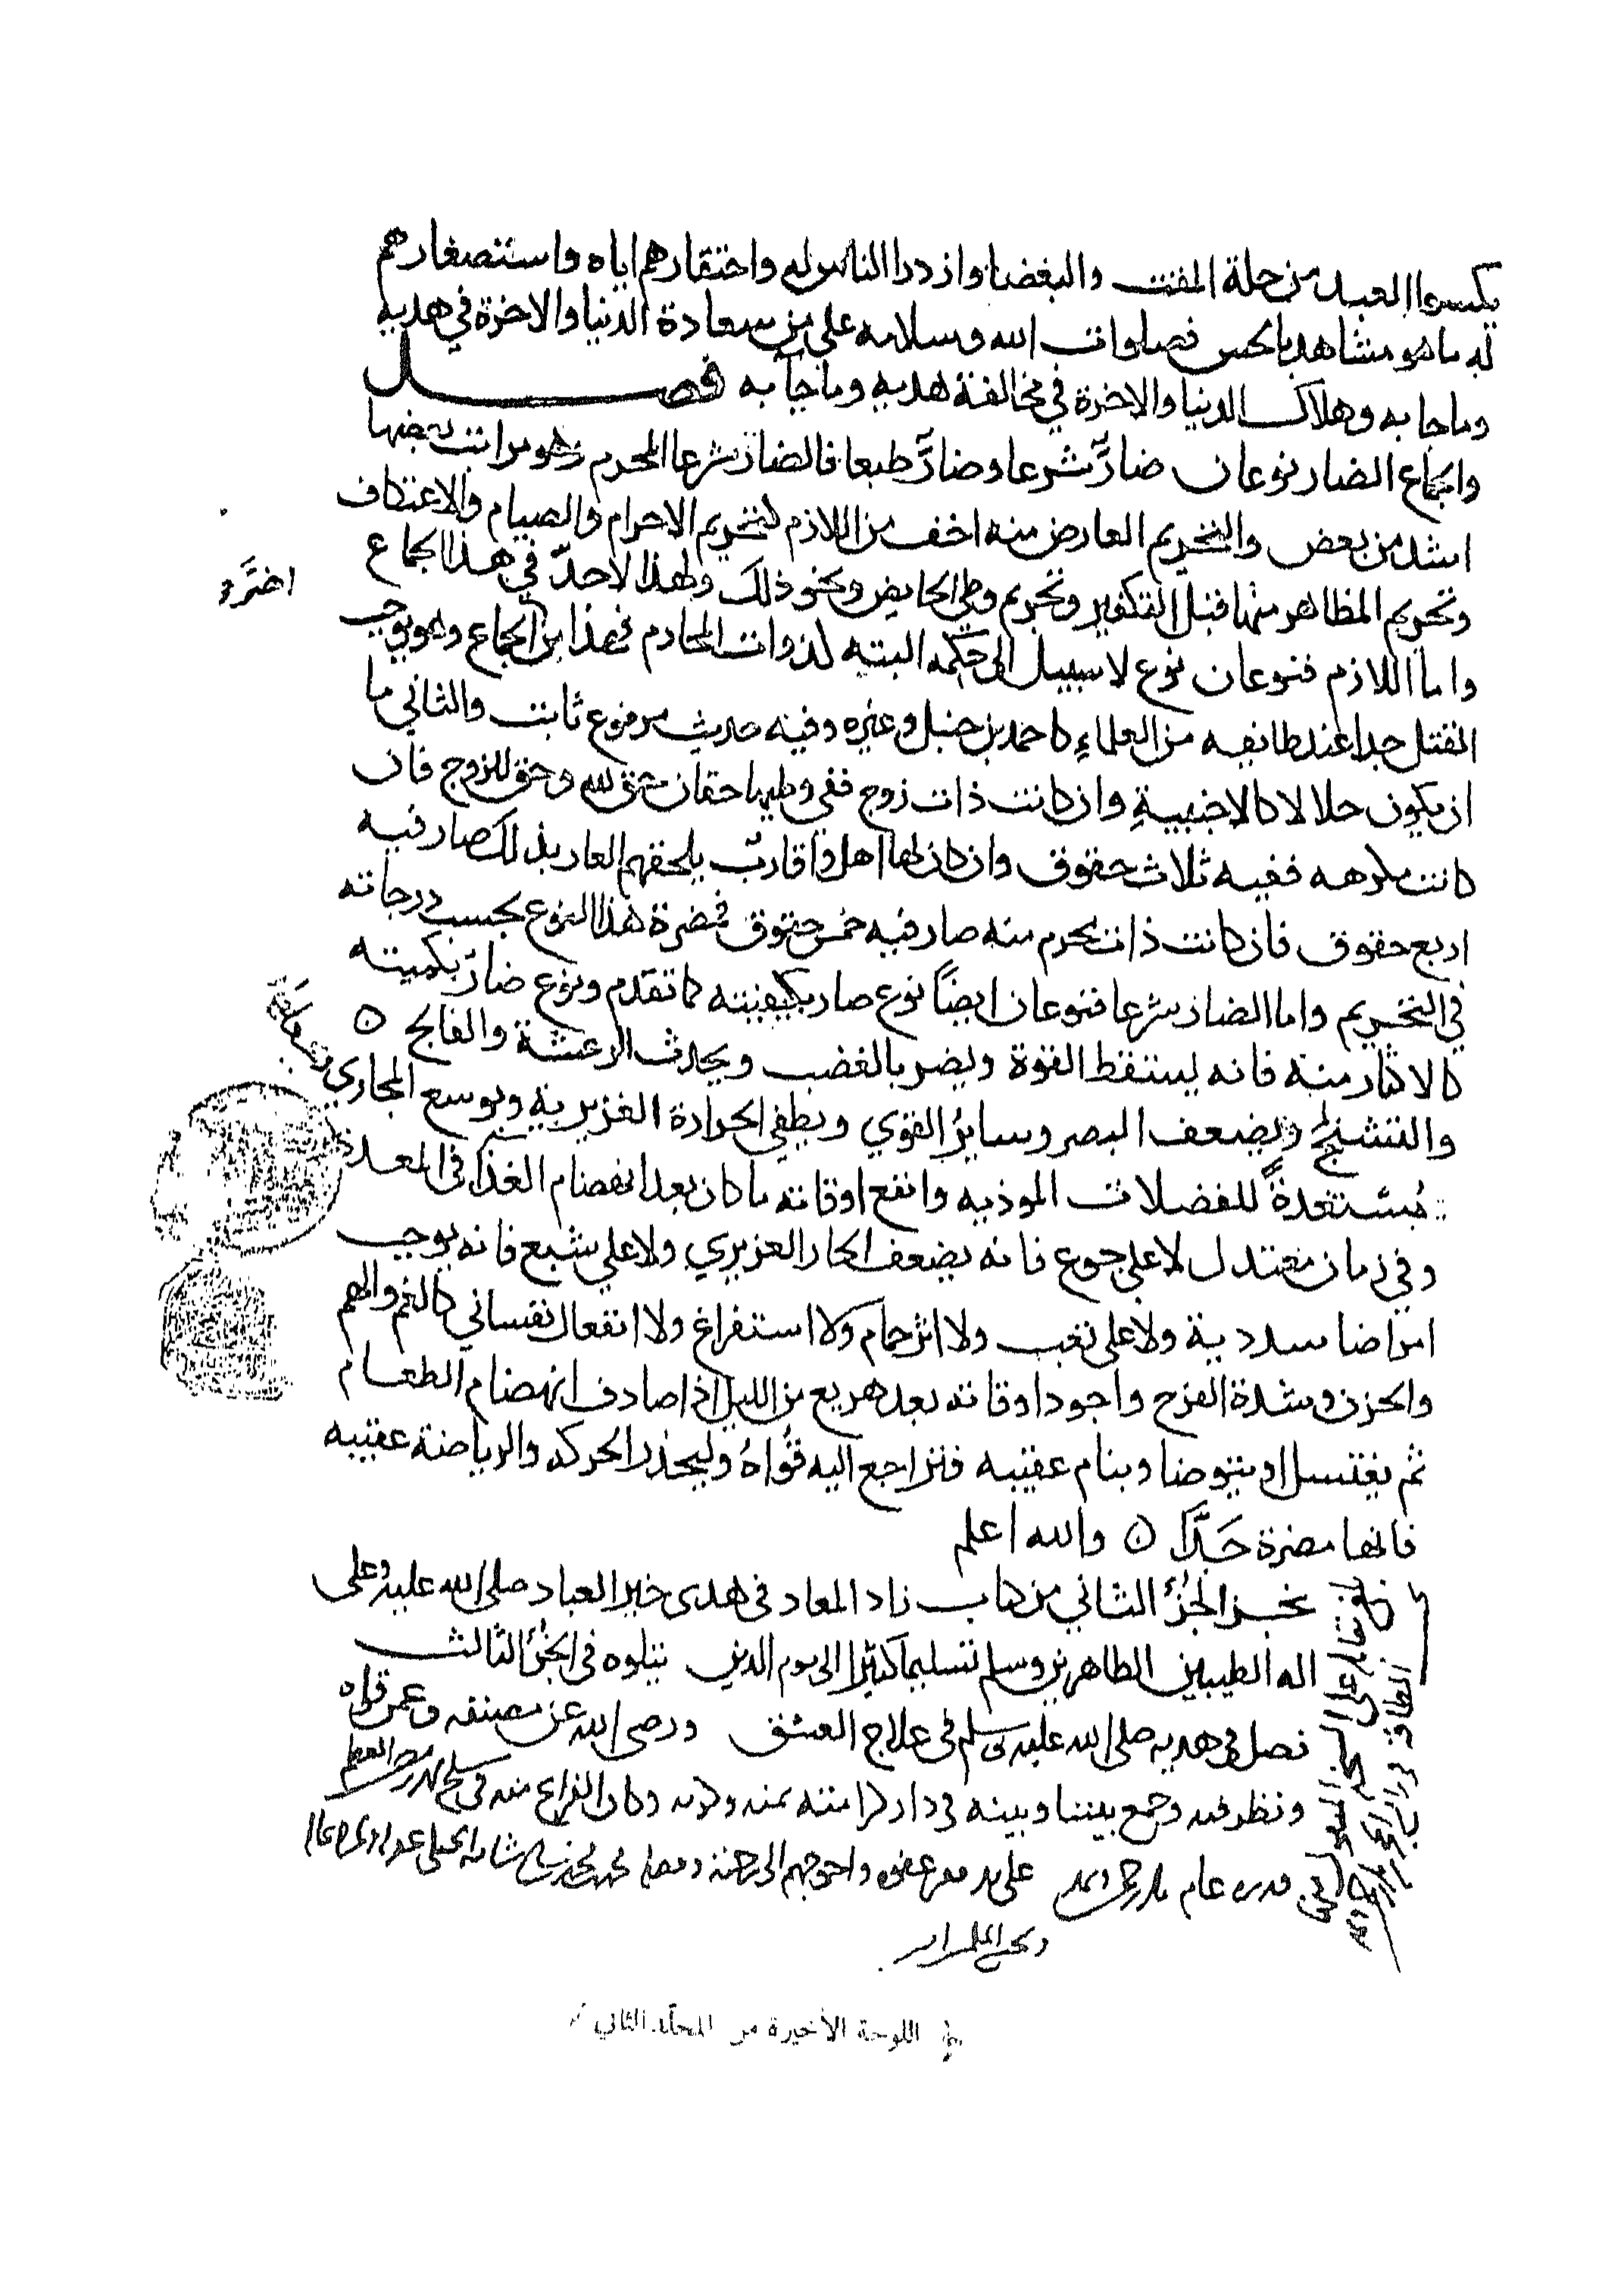 يكسوا العبد من حلة المقت والبغضا وازدرا الناس له واحتقارهم اياه واستصغارهم
له ما هو مشاهد بالحس فصلوات الله وسلامه على من سعادة الدنيا والاخرة في هديه
وما جا به وهلاك الدنيا والاخرة في مخالفة هديه وما جآ به فصل
والجماع الضار نوعان ضارٌّ شرعا وضارٌّ طبعا فالضار شرعا المحرم وهو مراتب بعضها
اشد من بعض والتحريم العارض منه اخف من اللازم كتحريم الاحرام والصيام والاعتكاف
وتحريم المظاهر منها قبل التكفير وتحريم وطي الحايض ونحو ذلك ولهذا لا حدّ في هذا الجماع
واما اللازم فنوعان نوع لا سبيل الى حكمه البته كذوات المحارم فهذا من الجماع وهو يوجب
القتل حدا عند طايفه من العلماء كاحمد بن حنبل وغيره وفيه حديث مرفوع ثابت والثاني ما
ان يكون حلالا كالاجنبية وان كانت ذات زوج ففي وطيها حقان حق لله وحق للزوج فان
كانت مكرهه ففيه ثلاث حقوق وان كان لها اهل واقارب يلحقهم العار بذلك صار فيه
اربع حقوق فان كانت ذات محرم منه صار فيه خمس حقوق فمضرة هذا النوع بحسب درجاته
في التحريم واما الضار شرعا فنوعان ايضًا نوع ضار بكيفيته كما تقدم ونوع ضارّ بكميته
كالاكثار منه فانه يسقط القوة ويضر بالعصب ويحدث الرعشة والفالج
والتشنج ويضعف البصر وساير القوي ويطفي الحرارة الغزيريه ويوسع المجاري
مستعدةً للفضلات الموذيه وانفع اوقاته ما كان بعد انهضام الغذا في المعدة
وفي زمان معتدل لا على جوع فانه يضعف الحار العزيزي ولا على شبع فانه يوجب
امراضا سددية ولا على تعب ولا اثر حمام ولا استفراغ ولا انفعال نفساني كالغم والهم
والحزن وشدة الفرح واجود اوقاته بعد هزيع من الليل اذا صادف انهضام الطعام
ثم يغتسل او يتوضا وينام عقيبه فتراجع اليه قُواهُ وليحذر الحركه والرياضة عقيبه
فانها مضرة جدًّا ۞ والله اعلم
نجز الجزُ الثاني من كتاب زاد المعاد في هدى خير العباد صلى الله عليه وعلى
اله الطيبين الطاهرين وسلم تسليما كثيرا الى يوم الدين يتلوه في الجزُ الثالث
فصل في هديه صلى الله عليه وسلم في علاج العشق ورضى الله عن مصنفه وعمن قراه
ونظر فيه وجمع بيننا وبينه في دار كرامته بمنه وكرمه وكان الفراغ منه في سلخ شهر
على يد واحوجهم الى رحمته
اللوحة الأخيرة من المجلّد الثاني